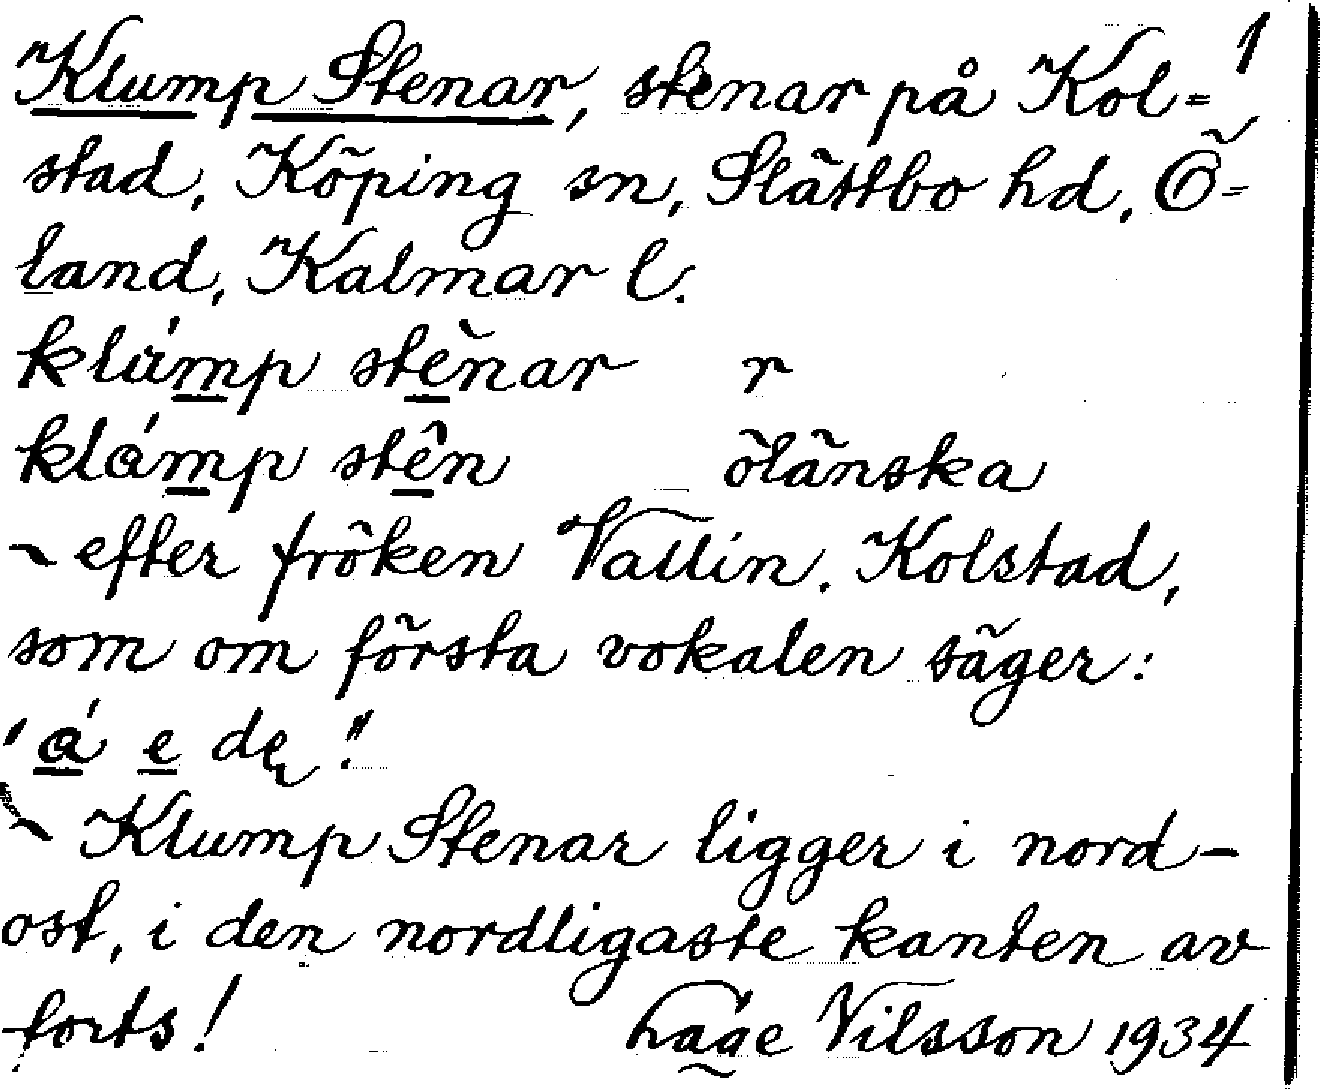 Klump Stenar, stenar på Kol= 1
stad, Köping sn, Slättbo hd, Ö=
land, Kalmar l.
klúmp stènar r
klámp stên ölänska
- efter fröken Vallin. Kolstad,
som om första vokalen säger:
"á e dę".
- Klump Stenar ligger i nord-
ost, i den nordligaste kanten av
forts! Låge Nilsson 1934